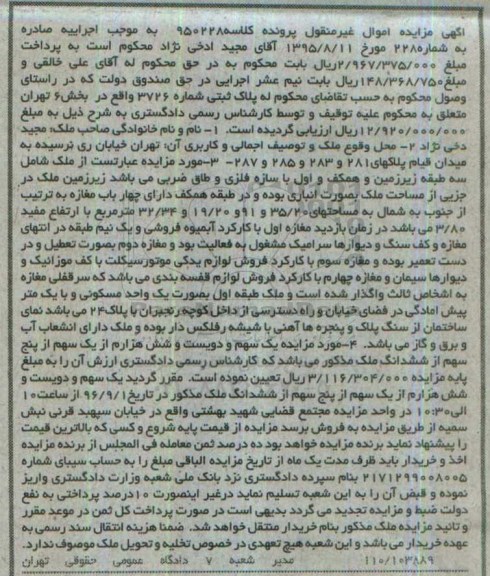 آگهی مزایده اموال غیرمنقول پرونده کلاسه۹۵۰۲۲۸ به موجب اجراییه صادره
به شماره۲۲۸ مورخ ۱۳۹۵/۸/۱۱ آقای مجید ادخی نژاد محکوم است به پرداخت
مبلغ ۲/۹۶۷/۳۷۵/۰۰۰ریال بابت محکوم به در حق محکوم له آقای علی خالقی و
مبلغ۱۴۸/۳۶۸/۷۵۰ریال بابت نیم عشر اجرایی در حق صندوق دولت که در راستای
وصول محکوم به حسب تقاضای محکوم له پلاک ثبتی شماره ۳۷۲۶ واقع در بخش۶ تهران
متعلق به محکوم علیه توقیف و توسط کارشناس رسمی دادگستری به شرح ذیل به مبلغ
۱۲/۹۲۰/۰۰۰/۰۰۰ریال ارزیابی گردیده است. ۱- نام و نام خانوادگی صاحب ملک: مجید
دخی نژاد ۲- محل وقوع ملک و توصیف اجمالی و کاربری آن: تهران خیابان ری نرسیده به
میدان قیام پلاکهای۲۸۱ و ۲۸۳ و ۲۸۵ و ۲۸۷- ۳-مورد مزایده عبارتست از ملک شامل
سه طبقه زیرزمین و همکف و اول با سازه فلزی و طاق ضربی می باشد زیرزمین ملک در
جزیی از مساحت ملک بصورت انباری بوده و در طبقه همکف دارای چهار باب مغازه به ترتیب
از جنوب به شمال به مساحتهای۳۵/۲۰ و ۹۱و ۱۹/۲۰ و ۳۲/۳۴ مترمربع با ارتفاع مفید
۳/۸۰ می باشد در زمان بازدید مغازه اول با کارکرد آبمیوه فروشی و یک نیم طبقه در انتهای
مغازه و کف سنگ و دیوارها سرامیک مشغول به فعالیت بود و مغازه دوم بصورت تعطیل و در
دست تعمیر بوده و مغازه سوم با کارکرد فروش لوازم یدکی موتورسیکلت با کف موزائیک و
دیوارها سیمان و مغازه چهارم با کارکرد فروش لوازم قفسه بندی می باشد که سرقفلی مغازه
به اشخاص ثالث واگذار شده است و ملک طبقه اول بصورت یک واحد مسکونی و با یک متر
پیش امادگی در فضای خیابان و راه دسترسی از داخل کوچه رنجبران با پلاک۲۴ می باشد نمای
ساختمان از سنگ پلاک و پنجره ها آهنی با شیشه رفلکس دار بوده و ملک دارای انشعاب آب
و برق و گاز می باشد. ۴-مورد مزایده یک سهم و دویست و شش هزارم از یک سهم از پنج
سهم از ششدانگ ملک مذکور می باشد که کارشناس رسمی دادگستری ارزش آن را به مبلغ
پایه مزایده ۳/۱۱۶/۳۰۴/۰۰۰ ریال تعیین نموده است. مقرر گردید یک سهم و دویست و
شش هزارم از یک سهم از پنج سهم از ششدانگ ملک مذکور در تاریخ۹۶/۹/۱ از ساعت۱۰
الی۱۰:۳۰ در واحد مزایده مجتمع قضایی شهید بهشتی واقع در خیابان سپهبد قرنی نبش
سمیه از طریق مزایده به فروش برسد مزایده از قیمت پایه شروع و کسی که بالاترین قیمت
را پیشنهاد نماید برنده مزایده خواهد بود ده درصد ثمن معامله فی المجلس از برنده مزایده
اخذ و خریدار باید ظرف مدت یک ماه از تاریخ مزایده الباقی مبلغ را به حساب سیبای شماره
۲۱۷۱۲۹۹۰۰۸۰۰۵ بنام سپرده دادگستری نزد بانک ملی شعبه وزارت دادگستری واریز
نموده و قبض آن را به این شعبه تسلیم نماید درغیر اینصورت ۱۰درصد پرداختی به نفع
دولت ضبط و مزایده تجدید می گردد بدیهی است در صورت پرداخت کل ثمن در موعد مقرر
و تائید مزایده ملک مذکور بنام خریدار منتقل خواهد شد. ضمنا هزینه انتقال سند رسمی به
عهده خریدار می باشد و این شعبه هیچ تعهدی در خصوص تخلیه و تحویل ملک موصوف ندارد.
۱۱۰/۱۰۳۸۸۹ مدیر شعبه ۷ دادگاه عمومی حقوقی تهران